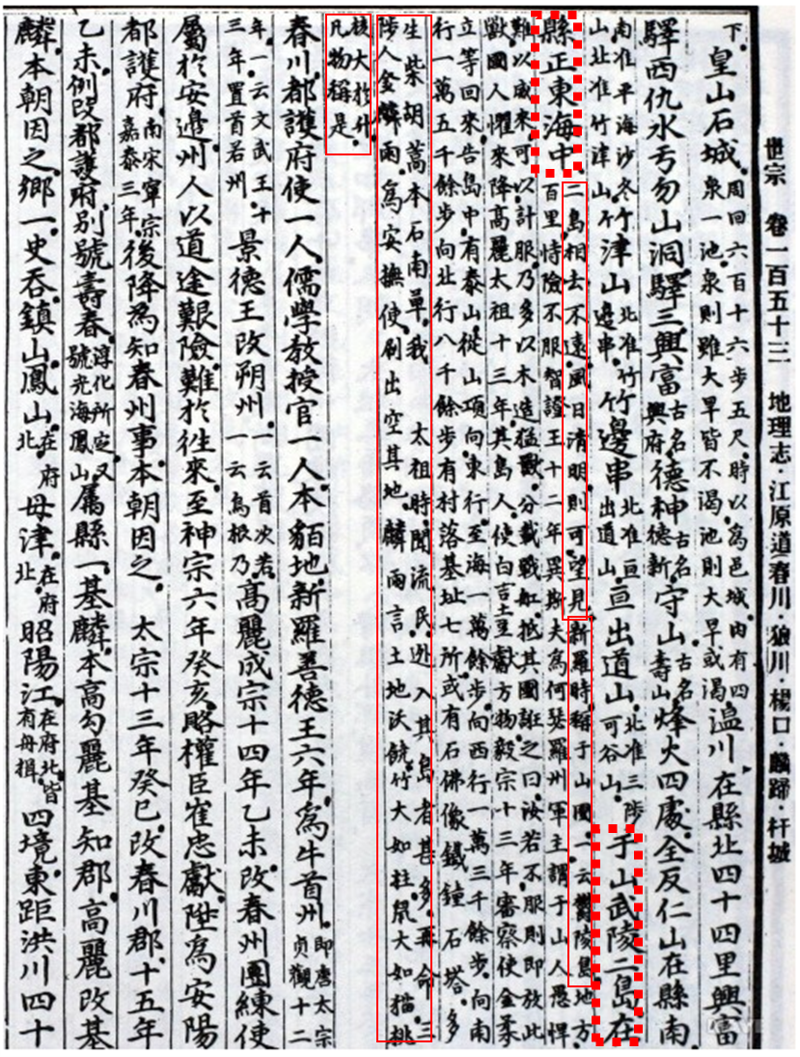 世宗　卷一百五十三　地理志·江原道春川·狼川·楊口·麟蹄·杆城
下皇山石城周回六百十六步五尺時以爲邑城內有四泉一池泉則雖大旱皆不渴池則大旱或渴温川在縣北四十四里興富
驛西仇水亐勿山洞驛三興富古名興府德神古名德新守山古名壽山烽火四處全反仁山在縣南
南准平海沙冬山北准竹津山竹津山北准竹邊串竹邊串北准亘出道山亘出道山北准三陟可谷山于山武陵二島在
縣正東海中二島相去不遠風日清明則可望見新羅時稱于山國一云鬱陵島地方
百里恃險不服智證王十二年異斯夫爲何瑟羅州軍主謂于山人愚悍
難以威來可以計服乃多以木造猛獸分載戰舡抵其國誑之曰汝若不服則即放此
獸國人懼來降高麗太祖十三年其島人使白吉土豆獻方物毅宗十三年審察使金柔
立等回來告島中有泰山從山頂向東行至海一萬餘步向西行一萬三千餘步向南
行一萬五千餘步向北行八千餘步有村落基址七所或有石佛像鐵鐘石塔多
生柴胡蒿本石南草我　太祖時聞流民逃入其島者甚多再命三
陟人金麟雨爲安撫使刷出空其地麟雨言土地沃饒竹大如柱鼠大如猫桃
核大於升
凡物稱是
春川都護府使一人儒學教授官一人本貊地新羅善德王六年爲牛首州即唐太宗貞觀十二
年一云文武王十三年置首若州景德王改朔州一云首次若一云烏根乃高麗成宗十四年乙未改春州團練使
屬於安邊州人以道途艱險難於往來至神宗六年癸亥賂權臣崔忠獻陞爲安陽
都護府南宋寧宗嘉泰三年後降爲知春州事本朝因之　太宗十三年癸巳改春川郡十五年
乙未例改都護府別號壽春淳化所定又號光海鳳山屬縣一基麟本高勾麗基知郡高麗改基
麟本朝因之鄉一史吞鎮山鳳山在府北母津在府北昭陽江在府北皆有舟楫四境東距洪川四十